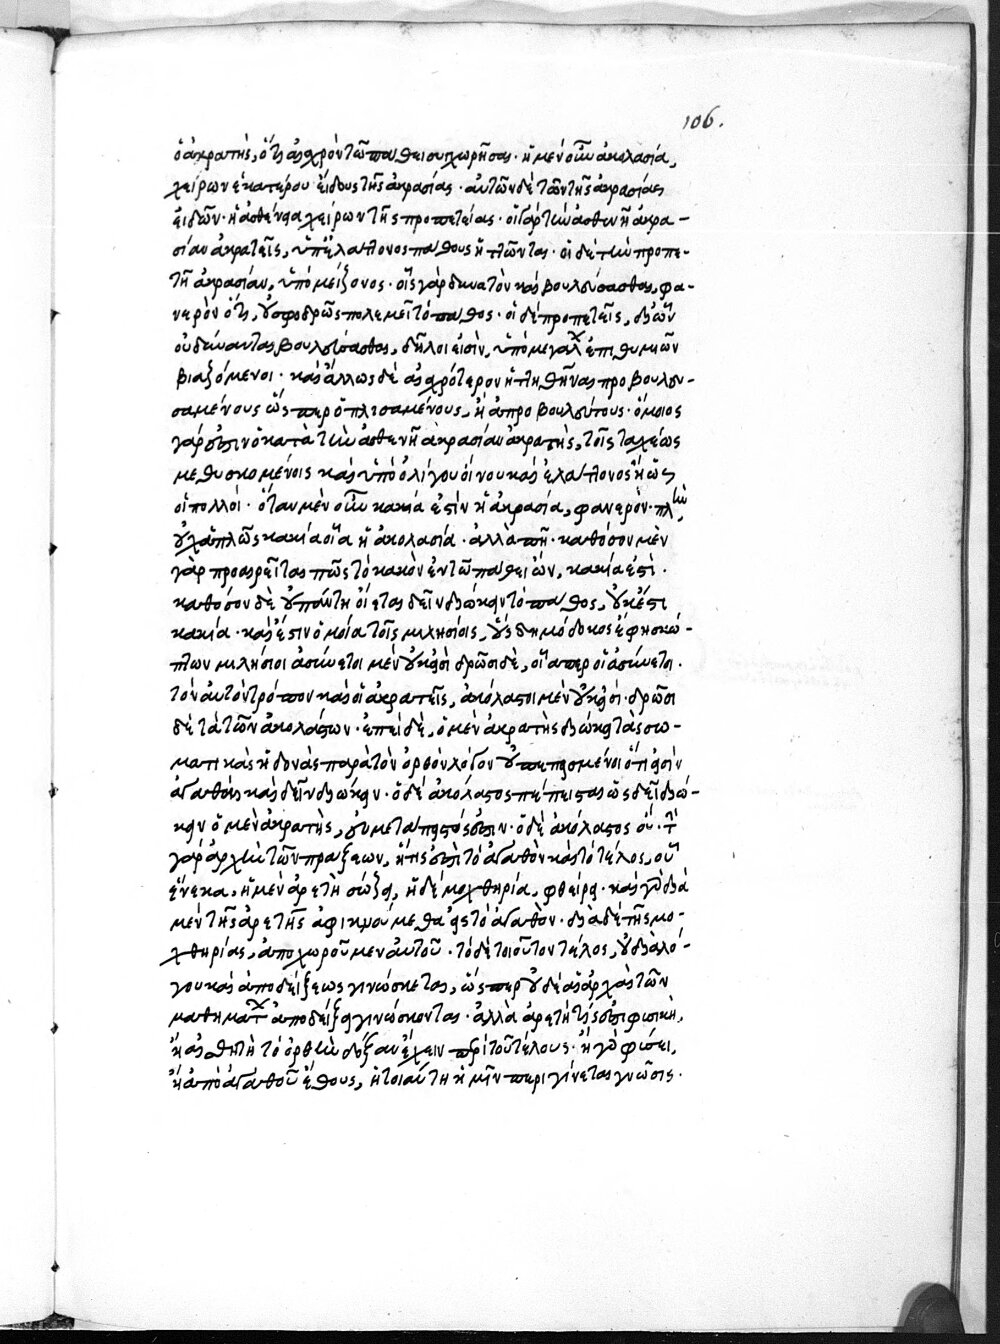 106.
ὁ ἀκρατὴς, ὅτι αἰσχρὸν τῶ πάθει συγχωρῆσαι. ἡ μὲν οὖν ἀκολασία,
χείρων ἑκατέρου εἴδους τῆς ἀκρασίας. αὐτῶν δὲ τῶν τῆς ἀκρασίας
εἰδῶν. ἡ ἀσθένεια χείρων τῆς προπετείας. οἱ γὰρ τὴν ἀσθενῆ ἀκρα-
σίαν ἀκρατεῖς, ὑπ' ἐλάττονος πάθους ἡττῶνται. οἱ δὲ τὴν προπε-
τῆ ἀκρασίαν, ὑπὸ μείζονος. οἷς γὰρ δυνατὸν καὶ βουλεύσασθαι, φα-
νερὸν ὅτι, οὐ σφοδρῶς πολεμεῖ τὸ πάθος. οἱ δὲ προπετεῖς, διῶν
οὐ δύνανται βουλεύσασθαι, δῆλοι εἰσὶν, ὑπὸ μεγάλων ἐπιθυμιῶν
βιαζόμενοι. καὶ ἄλλως δὲ αἰσχρότερον ἡττηθῆναι προβουλευ-
σαμένους ὥσπερ ὁπλισαμένους, ἢ ἀπροβουλεύτους. ὅμοιος
γάρ ἐστιν ὁ κατὰ τὴν ἀσθενῆ ἀκρασίαν ἀκρατὴς, τοῖς ταχέως
μεθυσκομένοις καὶ ὑπὸ ὀλίγου οἴνου καὶ ἐλάττονος ἢ ὡς
οἱ πολλοί. ὅταν μὲν οὖν κακία ἐστὶν ἡ ἀκρασία, φανερόν. πλὴν,
οὐχ ἁπλῶς κακία οἵα ἡ ἀκολασία. ἀλλὰ πῆ. καθόσον μὲν
γὰρ προαιρεῖται πῶς τὸ κακὸν ἐν τῶ πάθει ὢν, κακία ἐστί.
καθόσον δὲ οὐ πάντη οἴεται δεῖν διώκειν τὸ πάθος, οὐκ ἔστι
κακία. καὶ ἔστιν ὁμοία τοῖς μιλησίοις, οὓς δημόδοκος ἔφη σκώ-
πτων μιλήσιοι ἀσύνετοι μὲν οὐκ εἰσὶ δρῶσι δὲ, οἷα περ οἱ ἀσύνετοι.
τὸν αὐτὸν τρόπον καὶ οἱ ἀκρατεῖς, ἀκόλαστοι μὲν οὐκ εἰσί. δρῶσι
δὲ τὰ τῶν ἀκολάστων. ἐπεὶ δὲ, ὁ μὲν ἀκρατὴς διώκει τὰς σω-
ματικὰς ἡδονὰς παρὰ τὸν ὀρθὸν λόγον οὐ πεπεισμένοι ὅτι εἰσὶν
ἀγαθαὶ καὶ δεῖν διώκειν. ὁ δὲ ἀκόλαστος πέπεισται ὡς δεῖ διώ-
κειν ὁ μὲν ἀκρατὴς, εὐμετάπειστός ἐστιν. ὁ δὲ ἀκόλαστος οὔ. τὴν
γὰρ ἀρχὴν τῶν πράξεων, ἥτις ἐστὶ τὸ ἀγαθὸν καὶ τὸ τέλος, οὗ
ἕνεκα, ἡ μὲν ἀρετὴ σώζει, ἡ δὲ μοχθηρία, φθείρει. καὶ γὰρ διὰ
μὲν τῆς ἀρετῆς ἀφικνούμεθα εἰς τὸ ἀγαθὸν. διὰ δὲ τῆς μο-
χθηρίας, ἀποχωροῦμεν αὐτοῦ. τὸ δὲ τοιοῦτον τέλος, οὐ διὰ λό-
γου καὶ ἀποδείξεως γινώσκεται, ὥσπερ οὐδὲ αἱ ἀρχαὶ τῶν
μαθημάτων ἀποδείξει γινώσκονται. ἀλλὰ ἀρετή τίς ἐστι φυσικὴ,
ἢ καὶ ἐθιστὴ τὸ ὀρθὴν δόξαν ἔχειν περὶ τοῦ τέλους. ἢ γὰρ φύσει,
ἢ ἀπὸ ἀγαθοῦ ἔθους, ἡ τοιαύτη ἡμῖν περιγίνεται γνῶσις.